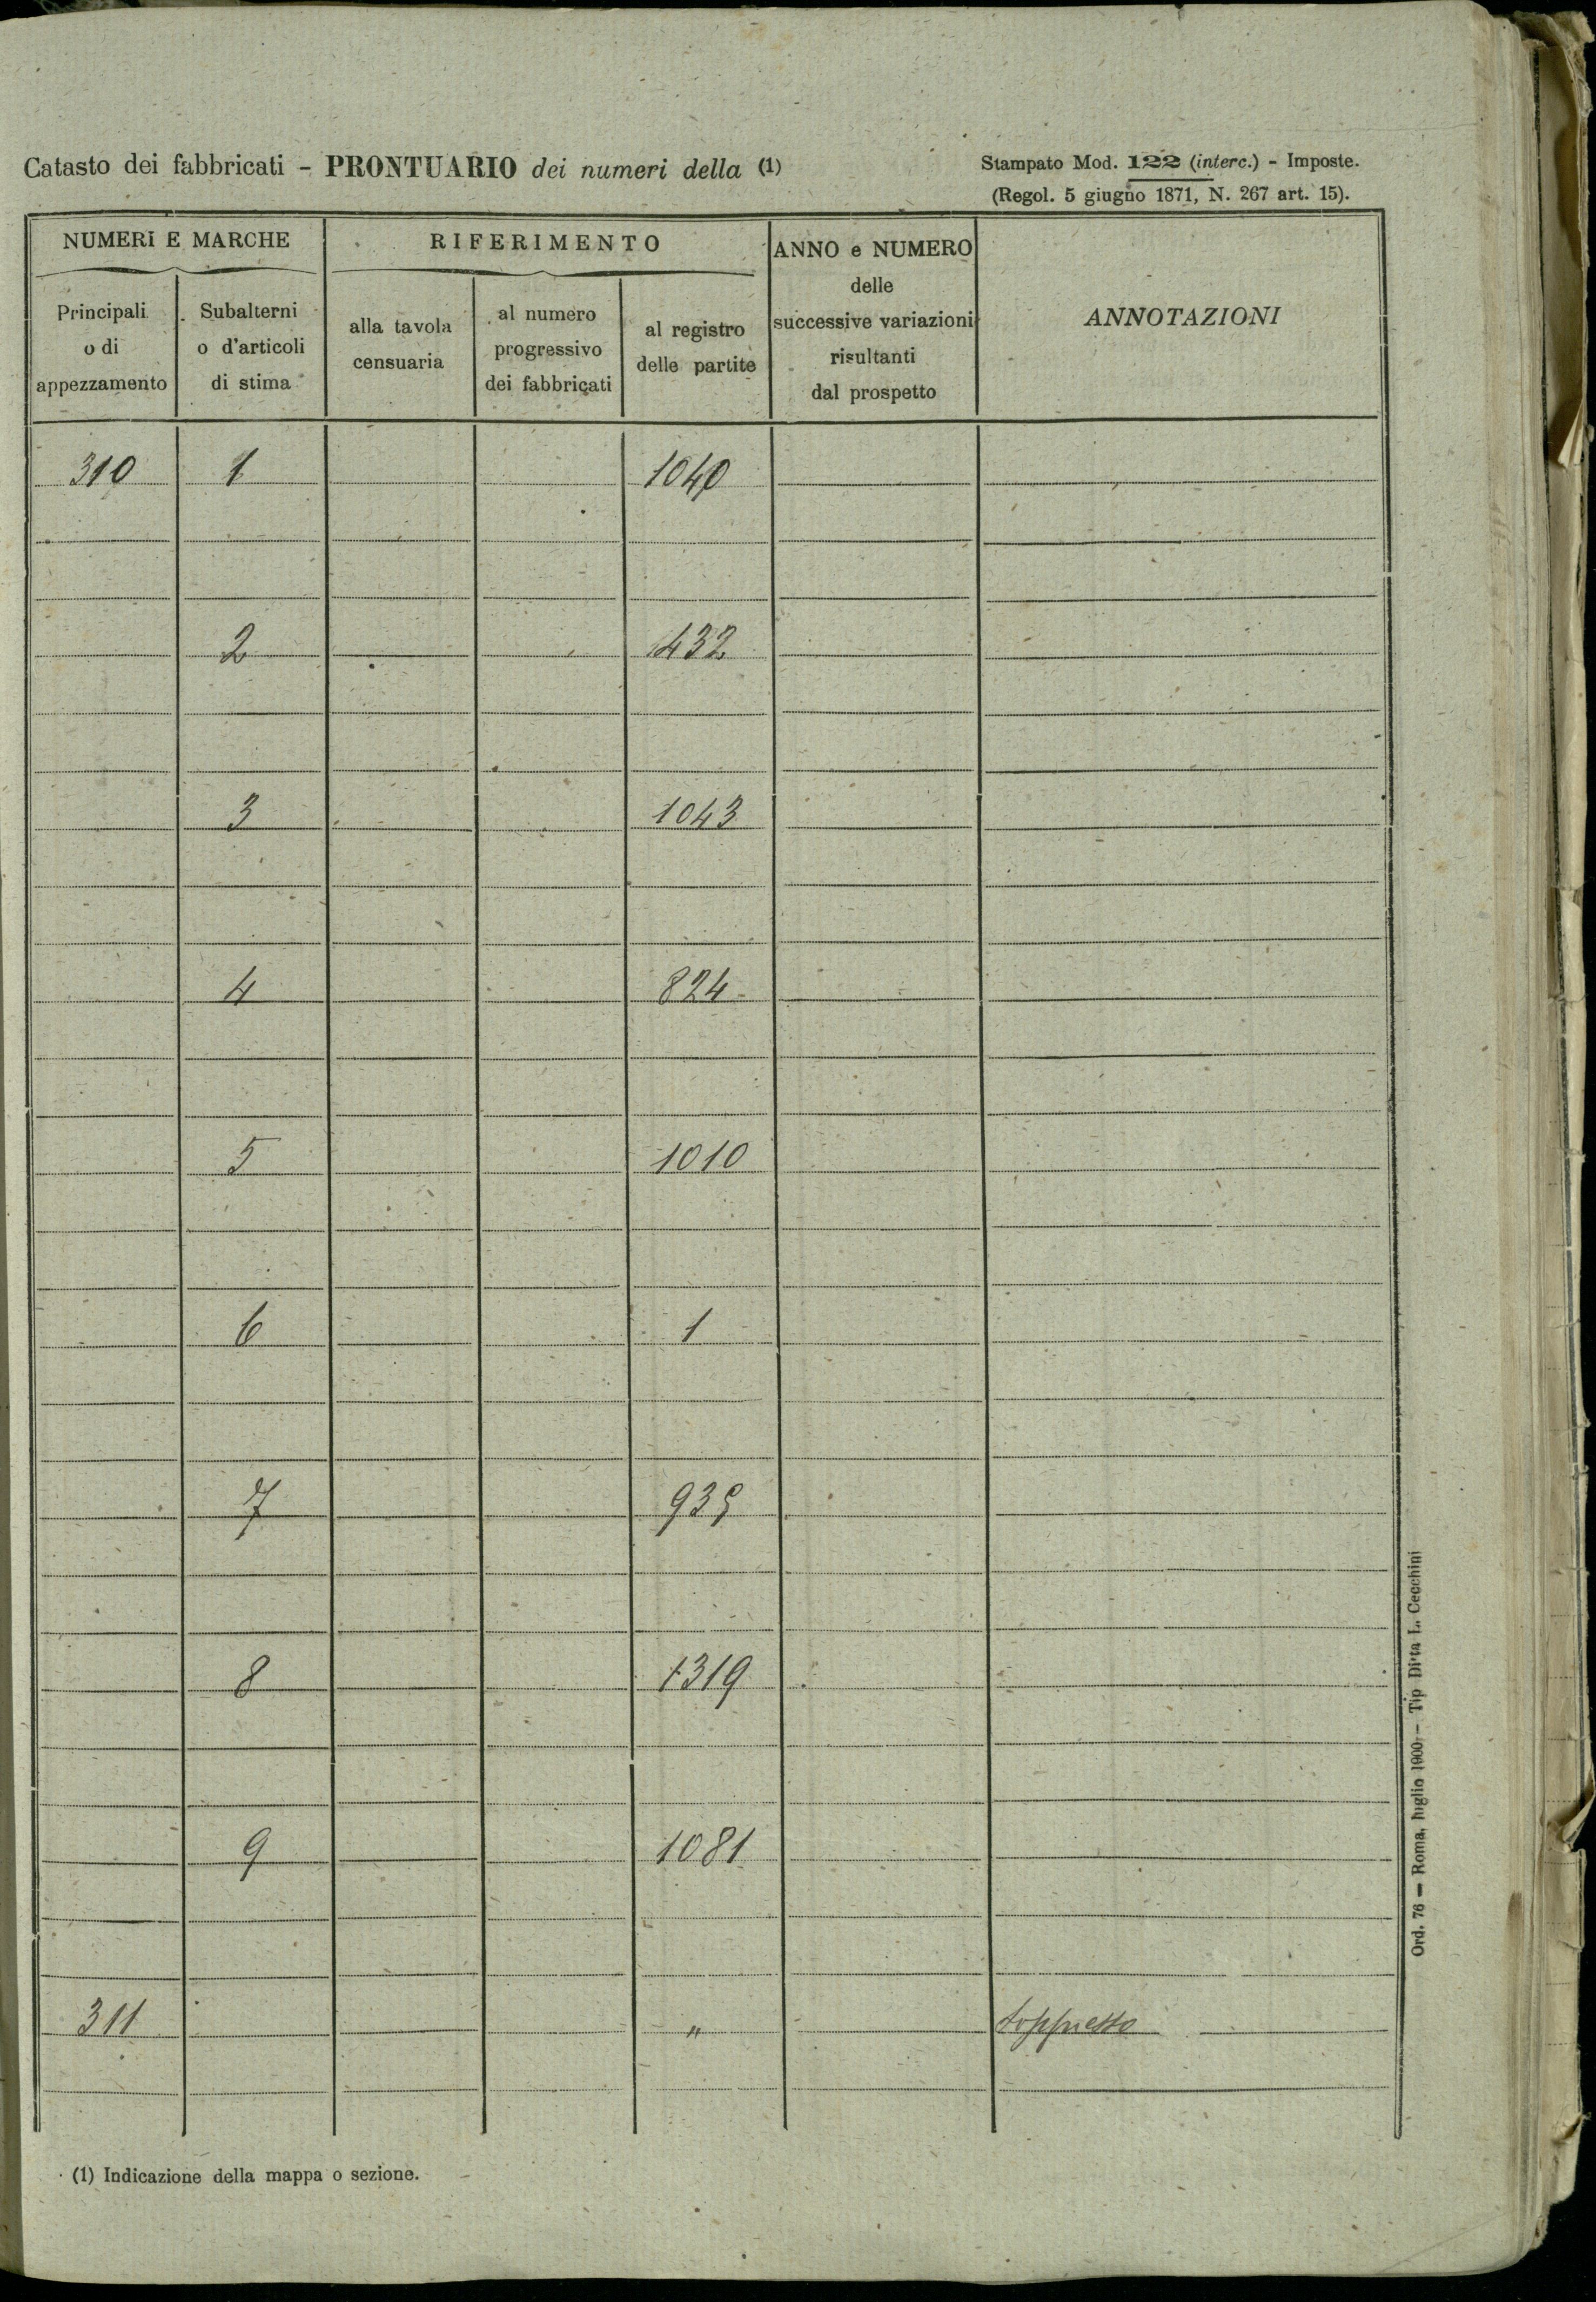 Catasto dei fabbricati - PRONTUARIO dei numeri della (1)
Stampato Mod. 122 (interc.) - Imposte.
(Regol. 5 giugno 1871, N. 267 art. 15).
NUMERI E MARCHE
RIFERIMENTO
ANNO e NUMERO
delle
successive variazioni
risultanti
dal prospetto
ANNOTAZIONI
Principali
o di
appezzamento
Subalterni
o d'articoli
di stima
alla tavola
censuaria
al numero
progressivo
dei fabbricati
al registro
delle partite
310 1 1040
2 1432
3 1043
4 824
5 1010
6 1
7 939
8 1319
9 1081
311 " soppresso
(1) Indicazione della mappa o sezione.
Ord. 76 — Roma, luglio 1900 — Tip Ditta L. Cecchini